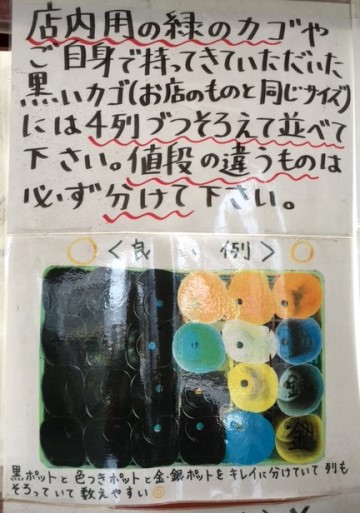 店内用の緑のカゴや
ご自身で持ってきていただいた
黒いカゴ(お店のものと同じサイズ)
には4列づつそろえて並べて
下さい。値段の違うものは
必ず分けて下さい。
○<良 例>○
黒ポットと色つきポットと金・銀ポットをキレイに分けていて列も
そろっていて数えやすい◎